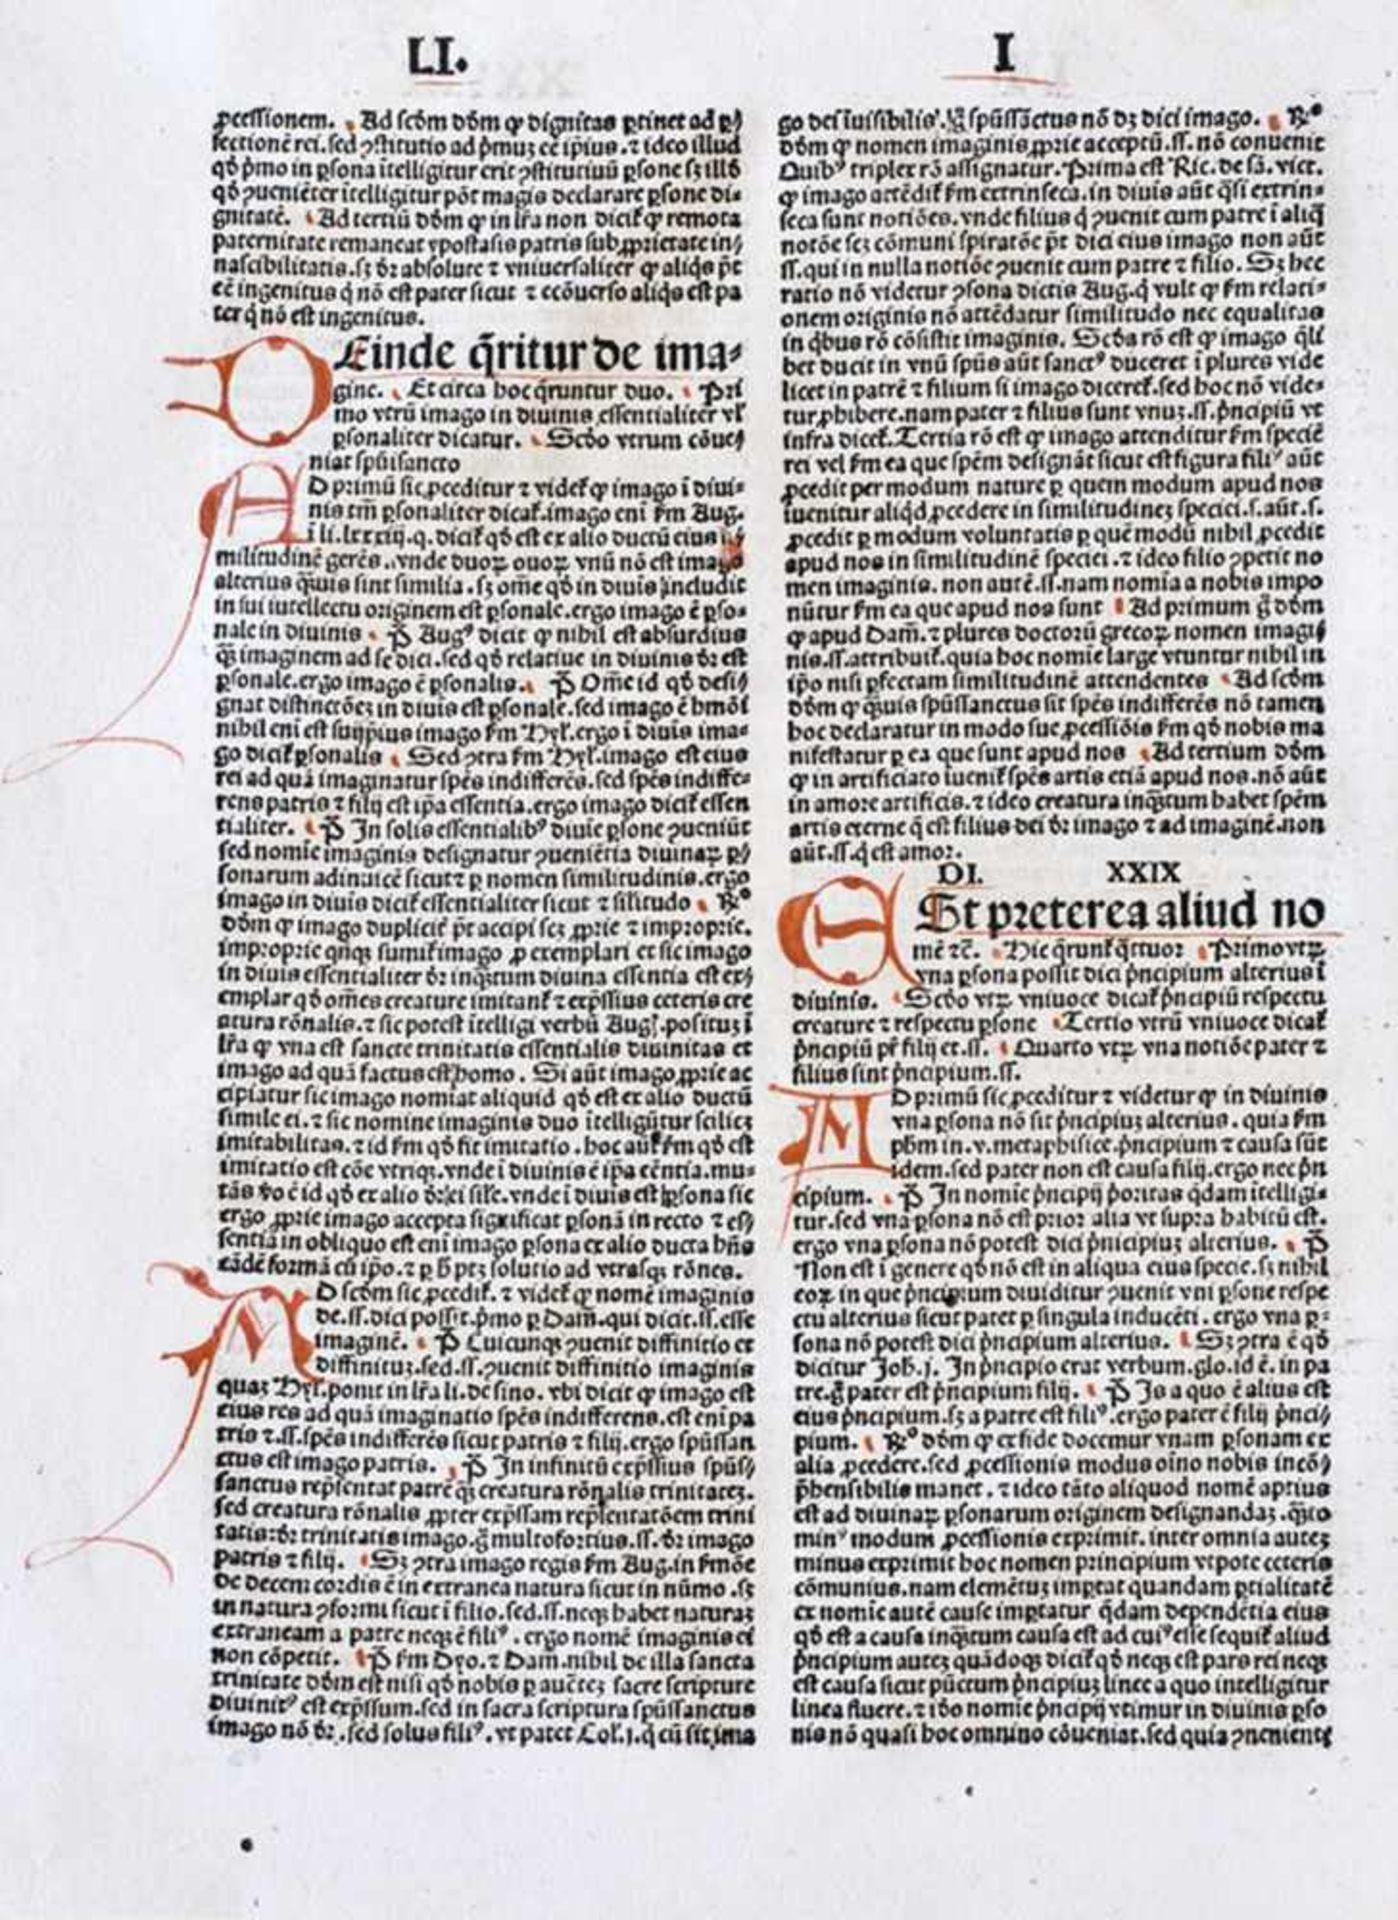 LI.
I
ꝓcessionem. Ad scḋm dḋm ꝙ dignitas ꝑtinet ad ꝑ⸗
fectionē rei. sed ꝯstitutio ad p̄muꝫ eē ipius. ⁊ ideo illud
qḋ p̄mo in ꝑsona ītelligitur erit ꝯstitutiuū ꝑsone sꝫ illḋ
qḋ ꝯueniēter ītelligitur pōt magis declarare ꝑsone di⸗
gnitatē. Ad tertiū dḋm ꝙ in lr̄a non dicit̄ ꝙ remota
paternitate remaneat ypostasis patris sub ꝓprietate in⸗
nascibilitatis. sꝫ dꝛ absolute ⁊ vniuersaliter ꝙ aliq̄s pōt
eē ingenitus q̄ nō est pater sicut ⁊ ecōuerso aliq̄s est pa
ter q̄ nō est ingenitus.
DEinde q̄ritur de ima⸗
gine. Et circa hoc q̄runtur duo. Pri
mo vtrū imago in diuinis essentialiter vl̄
ꝑsonaliter dicatur. Scḋo vtrum cōue⸗
niat spūisancto
AD primū sic ꝓceditur ⁊ videt̄ ꝙ imago ī diui⸗
nis tm̄ ꝑsonaliter dicat̄. imago eni ẜm Aug.
ī li. lxxxiij. q. dicit̄ qḋ est ex alio ductū eius
militudinē gerēs. vnde duoꝝ ouoꝝ vnū nō est imago
alterius q̄uis sint similia. sꝫ om̄e qḋ in diuīs includit
in sui intellectu originem est ꝑsonale. ergo imago ē ꝑso⸗
nale in diuinis. P̄ Augꝰ dicit ꝙ nihil est absurdius
q̄ꝫ imaginem ad se dici. sed qḋ relatiue in diuinis dꝛ est
ꝑsonale. ergo imago ē ꝑsonalis. P̄ Om̄e id qḋ desi⸗
gnat distinctōeꝫ in diuīs est ꝑsonale. sed imago ē hmōi
nihil eni est suijpsius imago ẜm Hyl̄. ergo ī diuīs ima⸗
go dicit̄ ꝑsonalis. Sed ꝯtra ẜm Hyl̄. imago est eius
rei ad quā imaginatur spēs indifferēs. sed spēs indiffe⸗
rens patris ⁊ filij est ip̄a essentia. ergo imago dicit̄ essen
tialiter. P̄ In solis essentialibꝰ diuīe ꝑsone ꝯueniūt
sed nomīe imaginis designatur ꝯueniētia diuinaꝝ ꝑ⸗
sonarum adinuicē sicut ⁊ ꝑ nomen similitudinis. ergo
imago in diuīs dicit̄ essentialiter sicut ⁊ silitudo. R̄ᵒ
dḋm ꝙ imago duplicit̄ pōt accipi scꝫ ꝓprie ⁊ improprie.
improprie qn̄qꝫ sumit̄ imago ꝓ exemplari et sic imago
in diuīs essentialiter dꝛ inq̄ꝫtum diuina essentia est ex⸗
emplar qḋ om̄es creature imitant̄ ⁊ exp̄ssius ceteris cre
atura rōnalis. ⁊ sic potest ītelligi verbū Augꝰ. posituꝫ ī
lr̄a ꝙ vna est sancte trinitatis essentialis diuinitas et
imago ad quā factus est homo. Si aūt imago ꝓprie ac
cipiatur sic imago nomīat aliquid qḋ est ex alio ductū
simile ei. ⁊ sic nomine imaginis duo ītelligūtur scilicꝫ
imitabilitas. ⁊ id ẜm qḋ fit imitatio. hoc aūt ẜm qḋ est
imitatio est cōe vtriqꝫ. vnde ī diuinis ē ip̄a eēntia. mu⸗
tās ꝟo ē id qḋ ex alio dꝛ ei sil̄e. vnde ī diuīs est ꝑsona sic
ergo ꝓprie imago accepta significat ꝑsonā in recto ⁊ es⸗
sentiā in obliquo est eni imago ꝑsona ex alio ducta hn̄s
eādē formā cū ip̄o. ⁊ ꝑ ħ ptꝫ solutio ad vtrasqꝫ rōnes.
AD scḋm sic ꝓcedit̄. ⁊ videt̄ ꝙ nomē imaginis
de. ss. dici possit. p̄mo ꝑ Dam̄. qui dicit. ss. esse
imaginē. P̄ Cuicunqꝫ ꝯuenit diffinitio et
diffinituꝫ. sed. ss. ꝯuenit diffinitio imaginis
quaꝫ Hyl̄. ponit in lr̄a li. de sino. vbi dicit ꝙ imago est
eius res ad quā imaginatio spēs indifferens. est eni pa
tris ⁊. ss. spēs indifferēs sicut patris ⁊ filij. ergo spūssan
ctus est imago patris. P̄ In infinitū exp̄ssius spūs⸗
sanctus rep̄sentat patrē q̄ꝫ creatura rōnalis trinitateꝫ.
sed creatura rōnalis ꝓpter exp̄ssam rep̄sentatōem trini
tatis dꝛ trinitatis imago. g̊ multofortius. ss. dꝛ imago
patris ⁊ filij. Sꝫ ꝯtra imago regis ẜm Aug. in ẜmōe
de decem cordis ē in extranea natura sicut in nūmo. sꝫ
in natura ꝯformi sicut ī filio. sed. ss. neqꝫ habet naturaꝫ
extraneam a patre neqꝫ ē filiꝰ. ergo nomē imaginis ei
non cōpetit. P̄ ẜm Dyo. ⁊ Dam̄. nihil de illa sancta
trinitate dḋm est nisi qḋ nobis ꝑ aucteꝫ sacre scripture
diuinitꝰ est exp̄ssum. sed in sacra scriptura spūssanctus
imago nō dꝛ. sed solus filiꝰ. vt patet Col. j. q̄ cū sit ima
go dei īuisibilisꝰ. g̊ spūssāctus nō dꝫ dici imago. R̄ᵒ
dḋm ꝙ nomen imaginis ꝓprie acceptū. ss. nō conuenit
Quibꝰ triplex rō assignatur. Prima est Ric. de sā. vict.
ꝙ imago attēdit̄ ẜm extrinseca. in diuīs aūt q̄si extrin⸗
seca sunt notiōes. vnde filius q̄ ꝯuenit cum patre ī aliq̄
notōe scꝫ cōmuni spiratōe pōt dici eius imago non aūt
ss. qui in nulla notiōe ꝯuenit cum patre ⁊ filio. Sꝫ hec
ratio nō videtur ꝯsona dictis Aug. q̄ vult ꝙ ẜm relati⸗
onem originis nō attēdatur similitudo nec equalitas
in q̄bus rō cōsistit imaginis. Scḋa rō est ꝙ imago q̄li
bet ducit in vnū spūs aūt sanctꝰ duceret ī plures vide
licet in patrē ⁊ filium si imago diceret̄. sed hoc nō vide⸗
tur ꝓhibere. nam pater ⁊ filius sunt vnuꝫ. ss. p̄ncipiū vt
infra dicet̄. Tertia rō est ꝙ imago attenditur ẜm speciē
rei vel ẜm ea que spēm designāt sicut est figura filiꝰ aūt
ꝓcedit per modum nature ꝑ quem modum apud nos
īuenitur aliq̄d ꝓcedere in similitudineꝫ speciei. s. aūt. s.
ꝓcedit ꝑ modum voluntatis ꝑ quē modū nihil ꝓcedit
apud nos in similitudinē speciei. ⁊ ideo filio ꝯpetit no
men imaginis. non autē. ss. nam nomīa a nobis impo
nūtur ẜm ea que apud nos sunt Ad primum g̊ dḋm
ꝙ apud Dam̄. ⁊ plures doctorū grecoꝝ nomen imagi⸗
nis. ss. attribuit̄. quia hoc nomīe large vtuntur nihil in
ip̄o nisi ꝑfectam similitudinē attendentes Ad scḋm
dḋm ꝙ q̄uis spūssanctus sit spēs indifferēs nō tamen
hoc declaratur in modo sue ꝓcessiōis ẜm qḋ nobis ma
nifestatur ꝑ ea que sunt apud nos Ad tertium dḋm
ꝙ in artificiato īuenit̄ spēs artis etiā apud nos. nō aūt
in amore artificis. ⁊ ideo creatura inq̄ꝫtum habet spēm
artis eterne q̄ est filius dei dꝛ imago ⁊ ad imaginē. non
aūt. ss. q̄ est amor.
DI. XXIX
ESt preterea aliud no
mē ⁊c̄. Hic q̄runt̄ q̄ttuor Primo vtꝝ
vna ꝑsona possit dici p̄ncipium alterius ī
diuinis. Scḋo vtꝝ vniuoce dicat̄ p̄ncipiū respectu
creature ⁊ respectu ꝑsone Tertio vtrū vniuoce dicat̄
p̄ncipiū pr̄ filij et. ss. Quarto vtꝝ vna notiōe pater ⁊
filius sint p̄ncipium. ss.
AD primū sic ꝓceditur ⁊ videtur ꝙ in diuinis
vna ꝑsona nō sit p̄ncipiuꝫ alterius. quia ẜm
pħm in. v. metaphisice. p̄ncipium ⁊ causa sūt
idem. sed pater non est causa filij. ergo nec p̄n
cipium. P̄ In nomīe p̄ncipij p̄oritas q̄dam ītelligi⸗
tur. sed vna ꝑsona nō est prior alia vt supra habitū est.
ergo vna ꝑsona nō potest dici p̄nicipiuꝫ alterius. P̄
Non est ī genere qḋ nō est in aliqua eius specie. sꝫ nihil
eoꝝ in que p̄ncipium diuiditur ꝯuenit vni ꝑsone respe
ctu alterius sicut patet ꝑ singula inducēti. ergo vna ꝑ⸗
sona nō potest dici p̄ncipium alterius. Sꝫ ꝯtra ē qḋ
dicitur Joh. j. In p̄ncipio erat verbum. glo. id ē. in pa
tre. g̊ pater est p̄ncipium filij. P̄ Is a quo ē alius est
eius p̄ncipium. sꝫ a patre est filiꝰ. ergo pater ē filij p̄nci⸗
pium. R̄ᵒ dḋm ꝙ ex fide docemur vnam ꝑsonam ex
alia ꝓcedere. sed ꝓcessionis modus oīno nobis incō⸗
p̄hensibilis manet. ⁊ ideo tāto aliquod nomē aptius
est ad diuinaꝝ ꝑsonarum originem designandaꝫ. q̄ꝫto
minꝰ modum ꝓcessionis exprimit. inter omnia auteꝫ
minus exprimit hoc nomen principium vtpote ceteris
cōmunius. nam elemētuꝫ imꝑtat quandam ꝑtialitatē
ex nomīe autē cause imꝑtatur q̄dam dependētia eius
qḋ est a causa inq̄ꝫtum causa est ad cuiꝰ esse sequit̄ aliud
p̄ncipium auteꝫ quādoqꝫ dicit̄ qḋ neqꝫ est pars rei neqꝫ
est causa sicut pūctum p̄ncipiuꝫ linee a quo intelligitur
linea fluere. ⁊ iḋo nomīe p̄ncipij vtimur in diuinis ꝑso
nis nō quasi hoc omnino cōueniat. sed quia ꝯnenient⸗